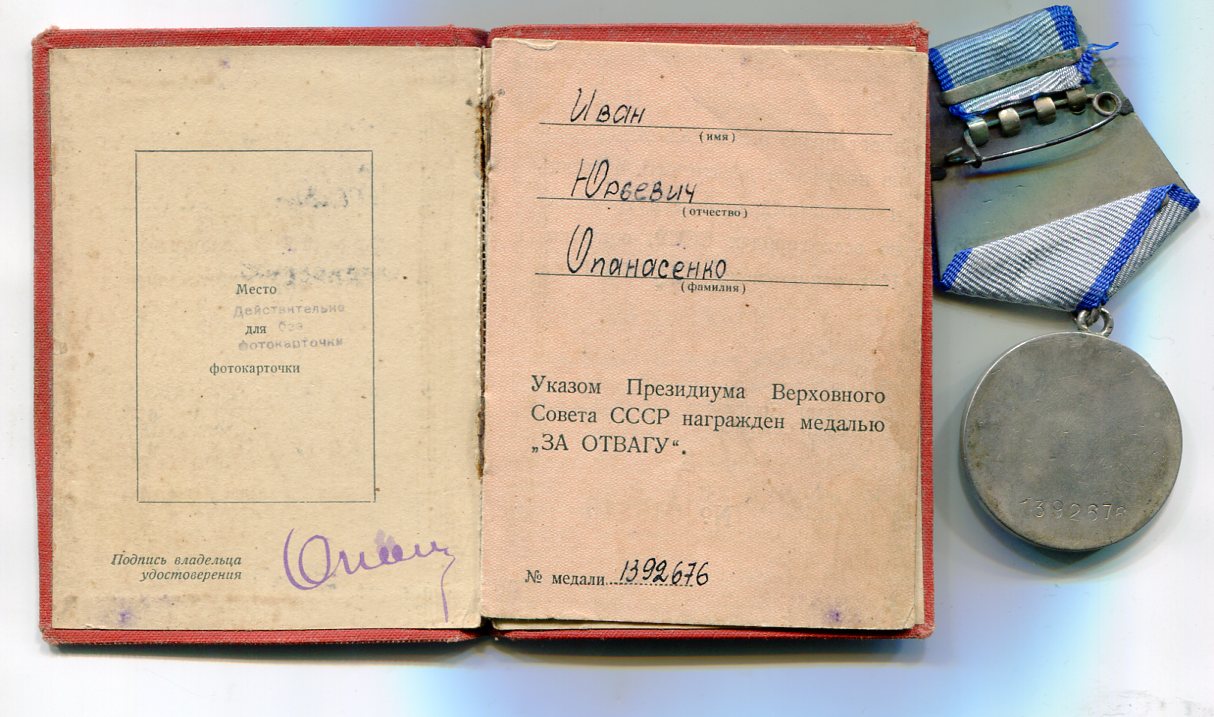 Место
Действительно
для без
фотокарточки
фотокарточки
Подпись владельца
удостоверения
Иван
(имя)
Юрьевич
(отчество)
Опанасенко
(фамилия)
Указом Президиума Верховного
Совета СССР награжден медалью
„ЗА ОТВАГУ“.
№ медали 1392676
1392676